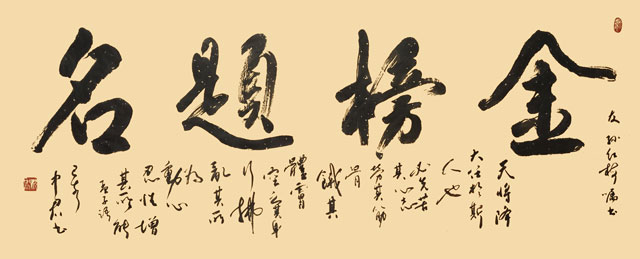 金榜題名
天將降
大任於斯
人也
必先苦
其心志
勞其筋
骨
餓其
體膚
空乏其身
行拂
亂其所
為
動心
忍性增
其所能
孟子語